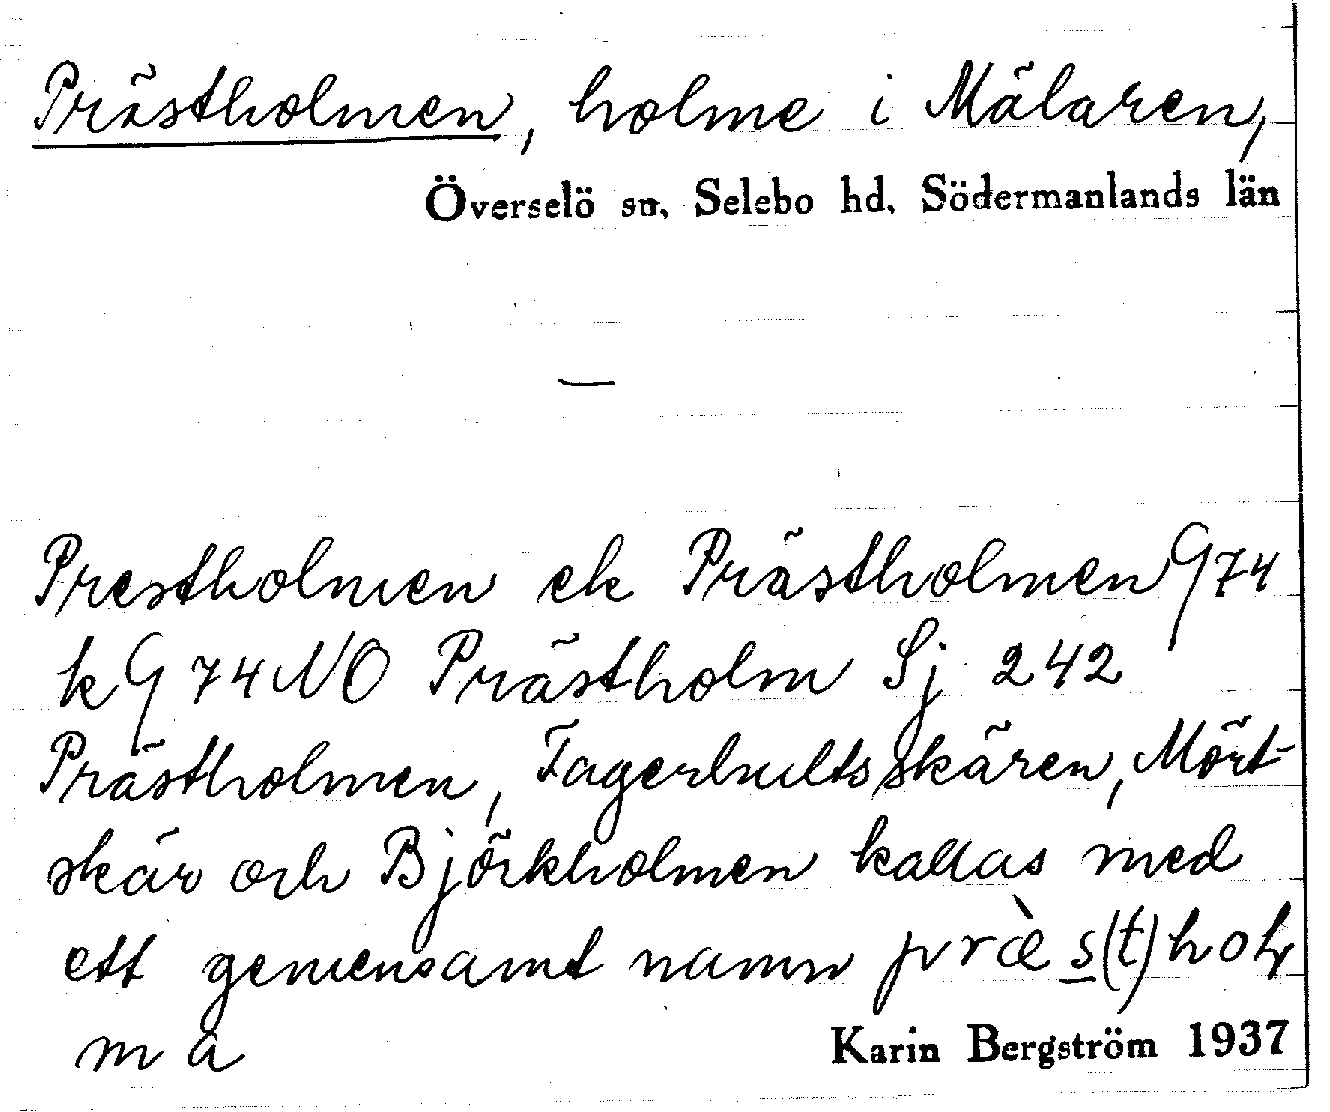 Prästholmen, holme i Mälaren,
Överselö sn, Selebo hd. Södermanlands län
—
Prestholmen ek Prästholmen G74
k G 74 NO Prästholm Sj 242
Prästholmen, Fagerhultsskären, Mört-
skär och Björkholmen kallas med
ett gemensamt namn præ̀s(t)hoł
ma
Karin Bergström 1937